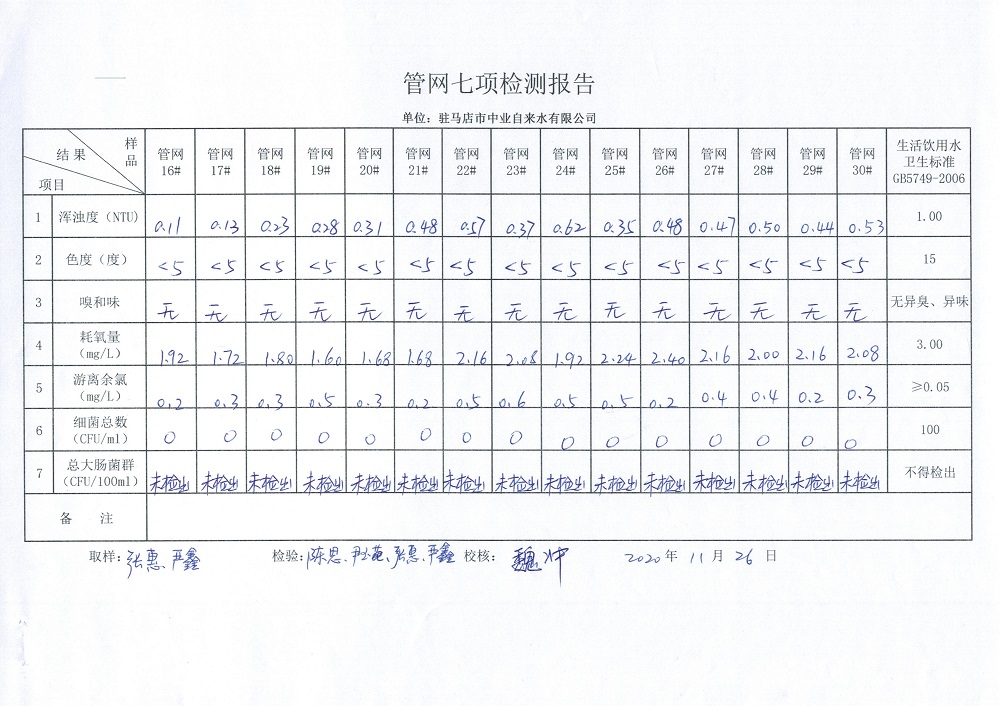 管网七项检测报告
单位：驻马店市中业自来水有限公司
结果 样品 项目 管网16# 管网17# 管网18# 管网19# 管网20# 管网21# 管网22# 管网23# 管网24# 管网25# 管网26# 管网27# 管网28# 管网29# 管网30# 生活饮用水卫生标准GB5749-2006
1 浑浊度（NTU） 0.11 0.13 0.23 0.28 0.31 0.48 0.57 0.37 0.62 0.35 0.48 0.47 0.50 0.44 0.53 1.00
2 色度（度） <5 <5 <5 <5 <5 <5 <5 <5 <5 <5 <5 <5 <5 <5 <5 15
3 嗅和味 无 无 无 无 无 无 无 无 无 无 无 无 无 无 无 无异臭、异味
4 耗氧量（mg/L） 1.92 1.72 1.80 1.60 1.68 1.68 2.16 2.08 1.92 2.24 2.40 2.16 2.00 2.16 2.08 3.00
5 游离余氯（mg/L） 0.2 0.3 0.3 0.5 0.3 0.2 0.5 0.6 0.5 0.5 0.2 0.4 0.4 0.2 0.3 ≥0.05
6 细菌总数（CFU/ml） 0 0 0 0 0 0 0 0 0 0 0 0 0 0 0 100
7 总大肠菌群（CFU/100ml） 未检出 未检出 未检出 未检出 未检出 未检出 未检出 未检出 未检出 未检出 未检出 未检出 未检出 未检出 未检出 不得检出
备 注
取样：张惠、严鑫 检验：陈思、张惠、严鑫 校核：魏冲 2020年11月26日